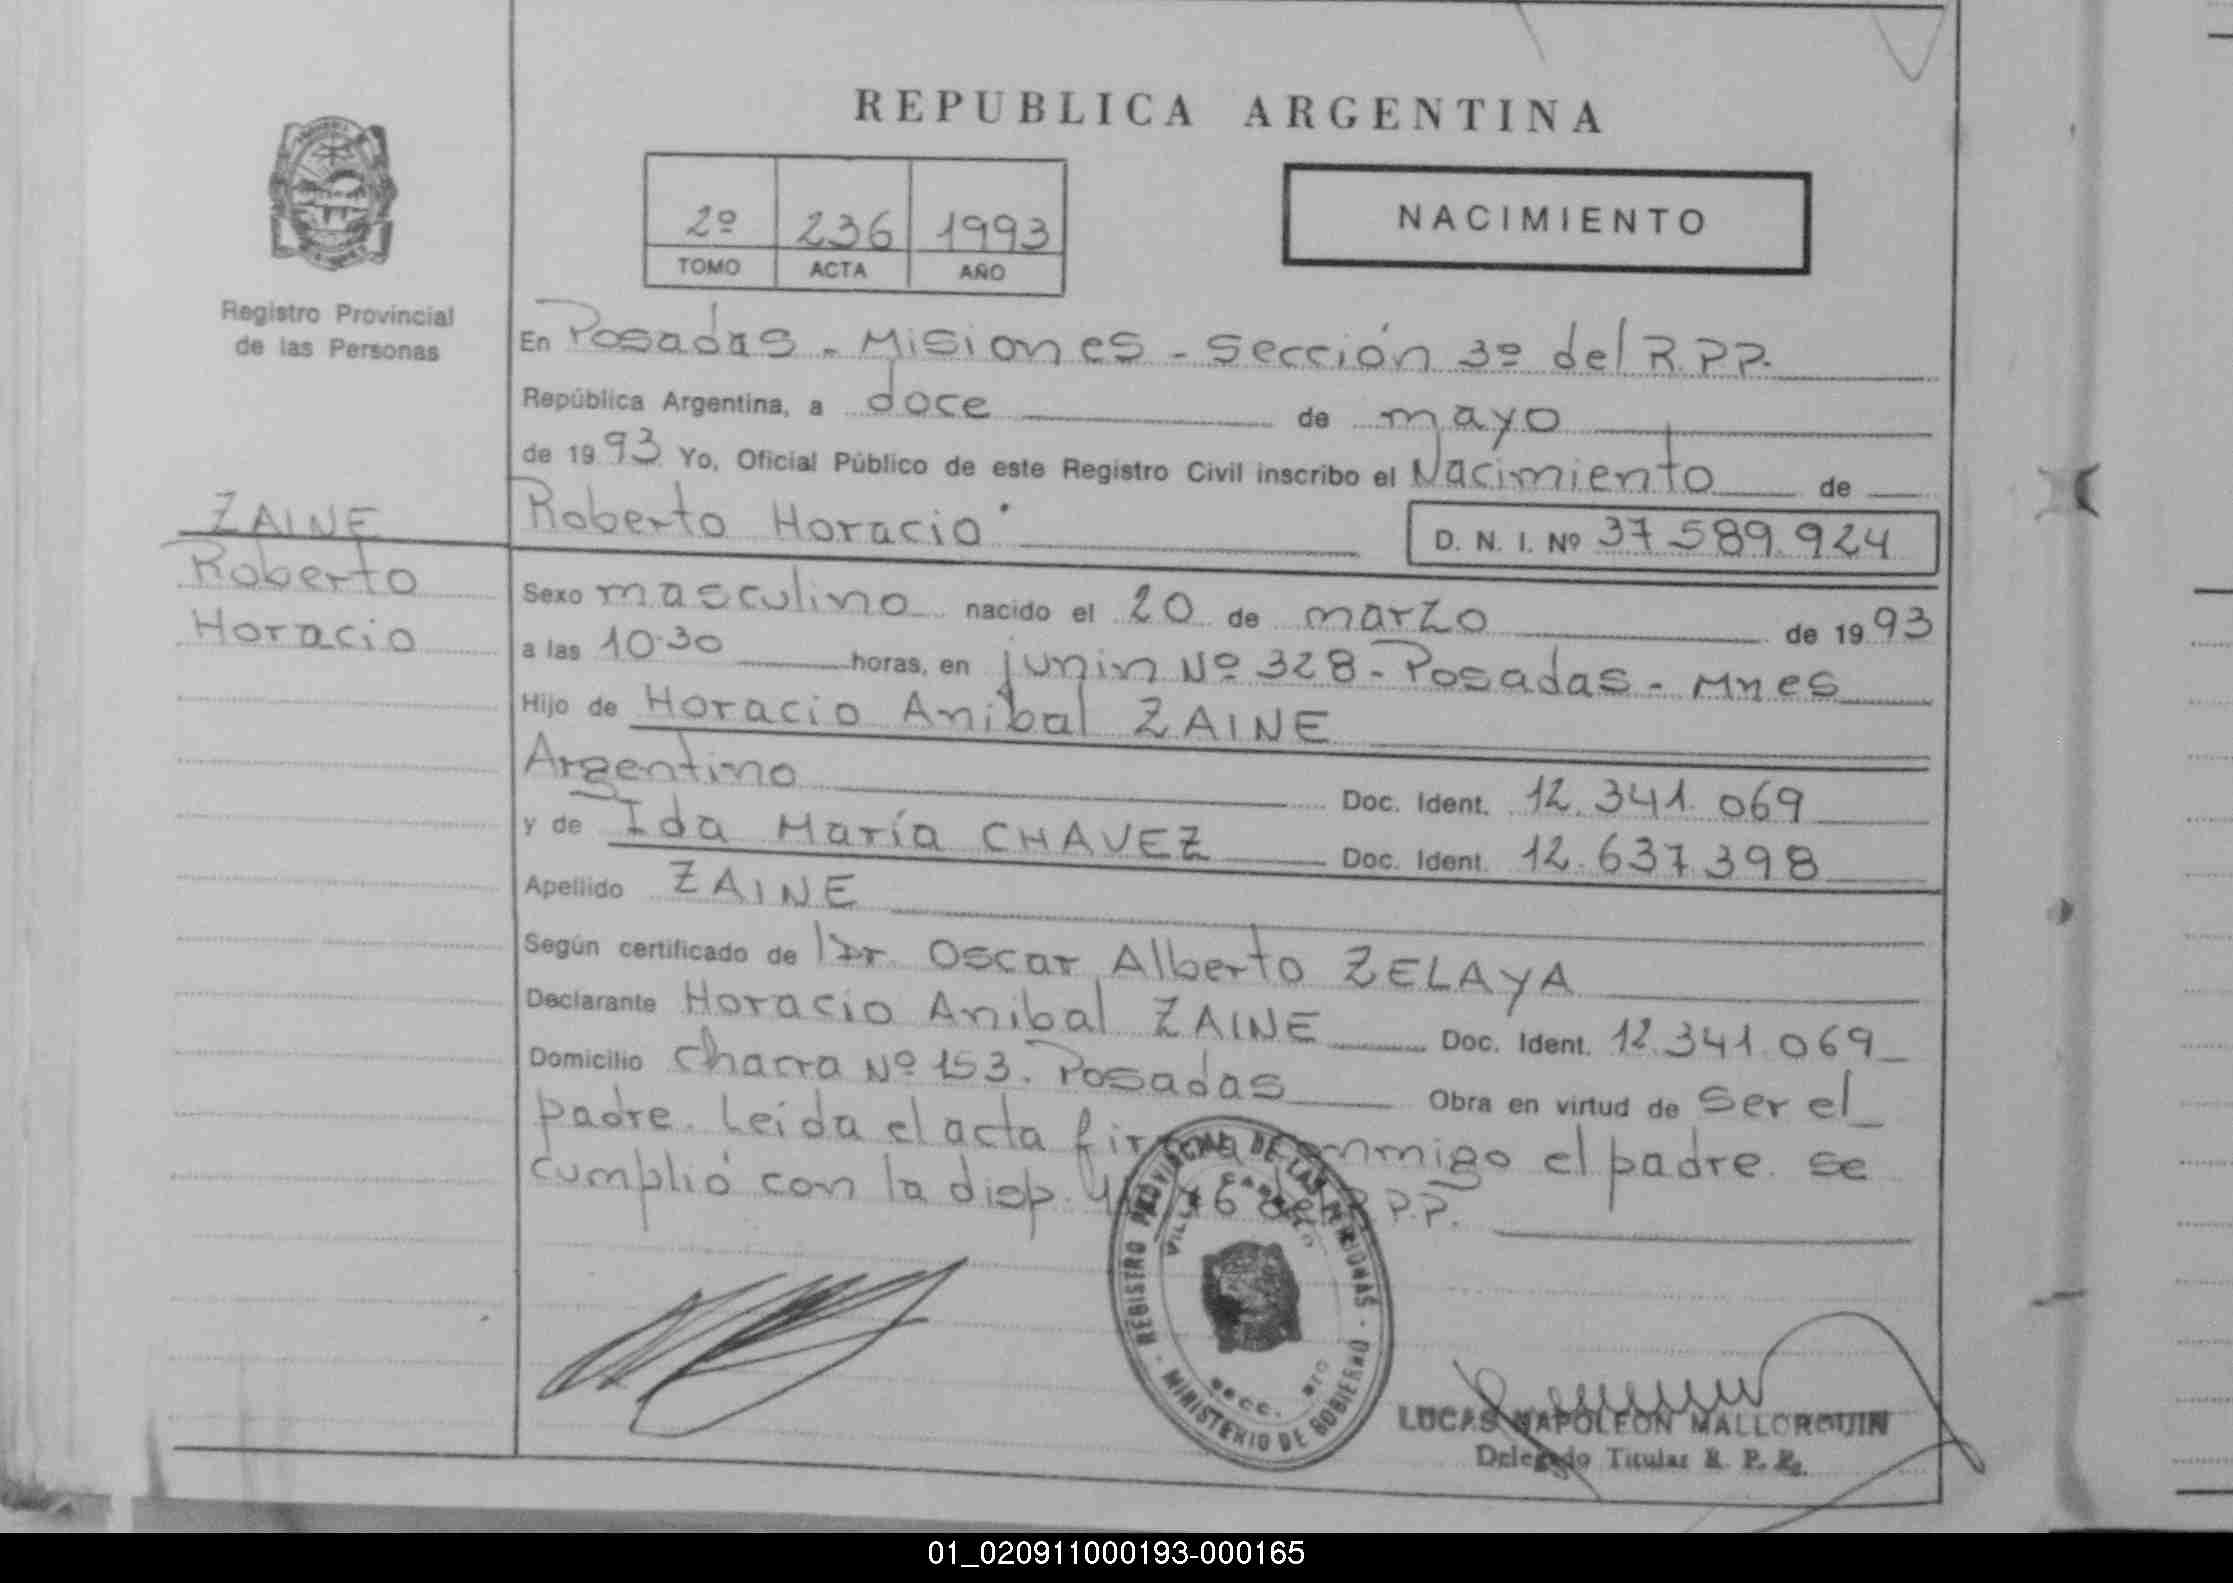 REPUBLICA ARGENTINA
2º 236 1993
TOMO ACTA AÑO
NACIMIENTO
Registro Provincial
de las Personas
En Posadas - Misiones - Sección 3º del R.P.P.
República Argentina, a doce de mayo
de 1993 Yo, Oficial Público de este Registro Civil inscribo el Nacimiento de
Roberto Horacio D. N. I. Nº 37.589.924
ZAINE
Roberto
Horacio
Sexo masculino nacido el 20 de marzo de 1993
a las 10.30 horas, en junin Nº 328 - Posadas - Mnes
Hijo de Horacio Anibal ZAINE
Argentino Doc. Ident. 12.341.069
y de Ida María CHAVEZ Doc. Ident. 12.637.398
Apellido ZAINE
Según certificado de Dr. Oscar Alberto ZELAYA
Declarante Horacio Anibal ZAINE Doc. Ident. 12.341.069
Domicilio Chacra Nº 153. Posadas Obra en virtud de ser el
padre. Leída el acta firma conmigo el padre. se
cumplió con la disp. R.P.P.
REGISTRO PROVINCIAL DE LAS PERSONAS - MINISTERIO DE GOBIERNO
VILLA
SECC.
LUCAS NAPOLEON MALLORQUIN
Delegado Titular R. P. P.
01_020911000193-000165